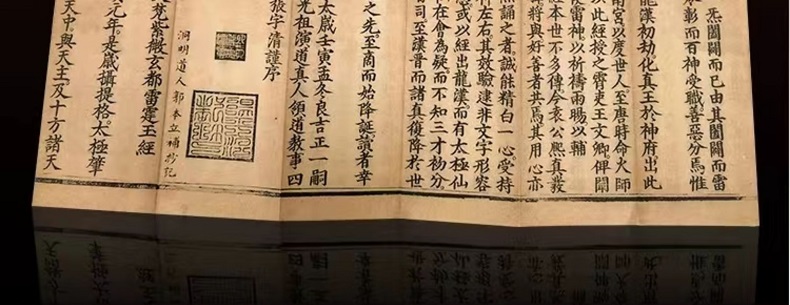 炁闔闢而已由其闔闢而雷
彰而百神受職善惡分焉惟
龍漢初劫化真王於神府出此
南宮以度世人至唐時命火師
以此經授之霄吏王文卿俾闡
雷神以祈禱雨暘以輔
經本世不多傳今袁公熙真
將與好善者共焉其用心亦
誦之者誠能精白一心受持
左右其效驗逮非文字形容
或以經出龍漢而有太極仙
在會為疑而不知三才初分
司至漢晉而諸真復降於世
之先至商而始降誕讀者幸
太歲壬寅孟冬良吉正一嗣
光祖演道真人領道教事四
張宇清謹序
洞明道人郭本立補抄記
梵紫微玄都雷霆玉經
元年是歲攝提格太極肇
天中與天王及十方諸天